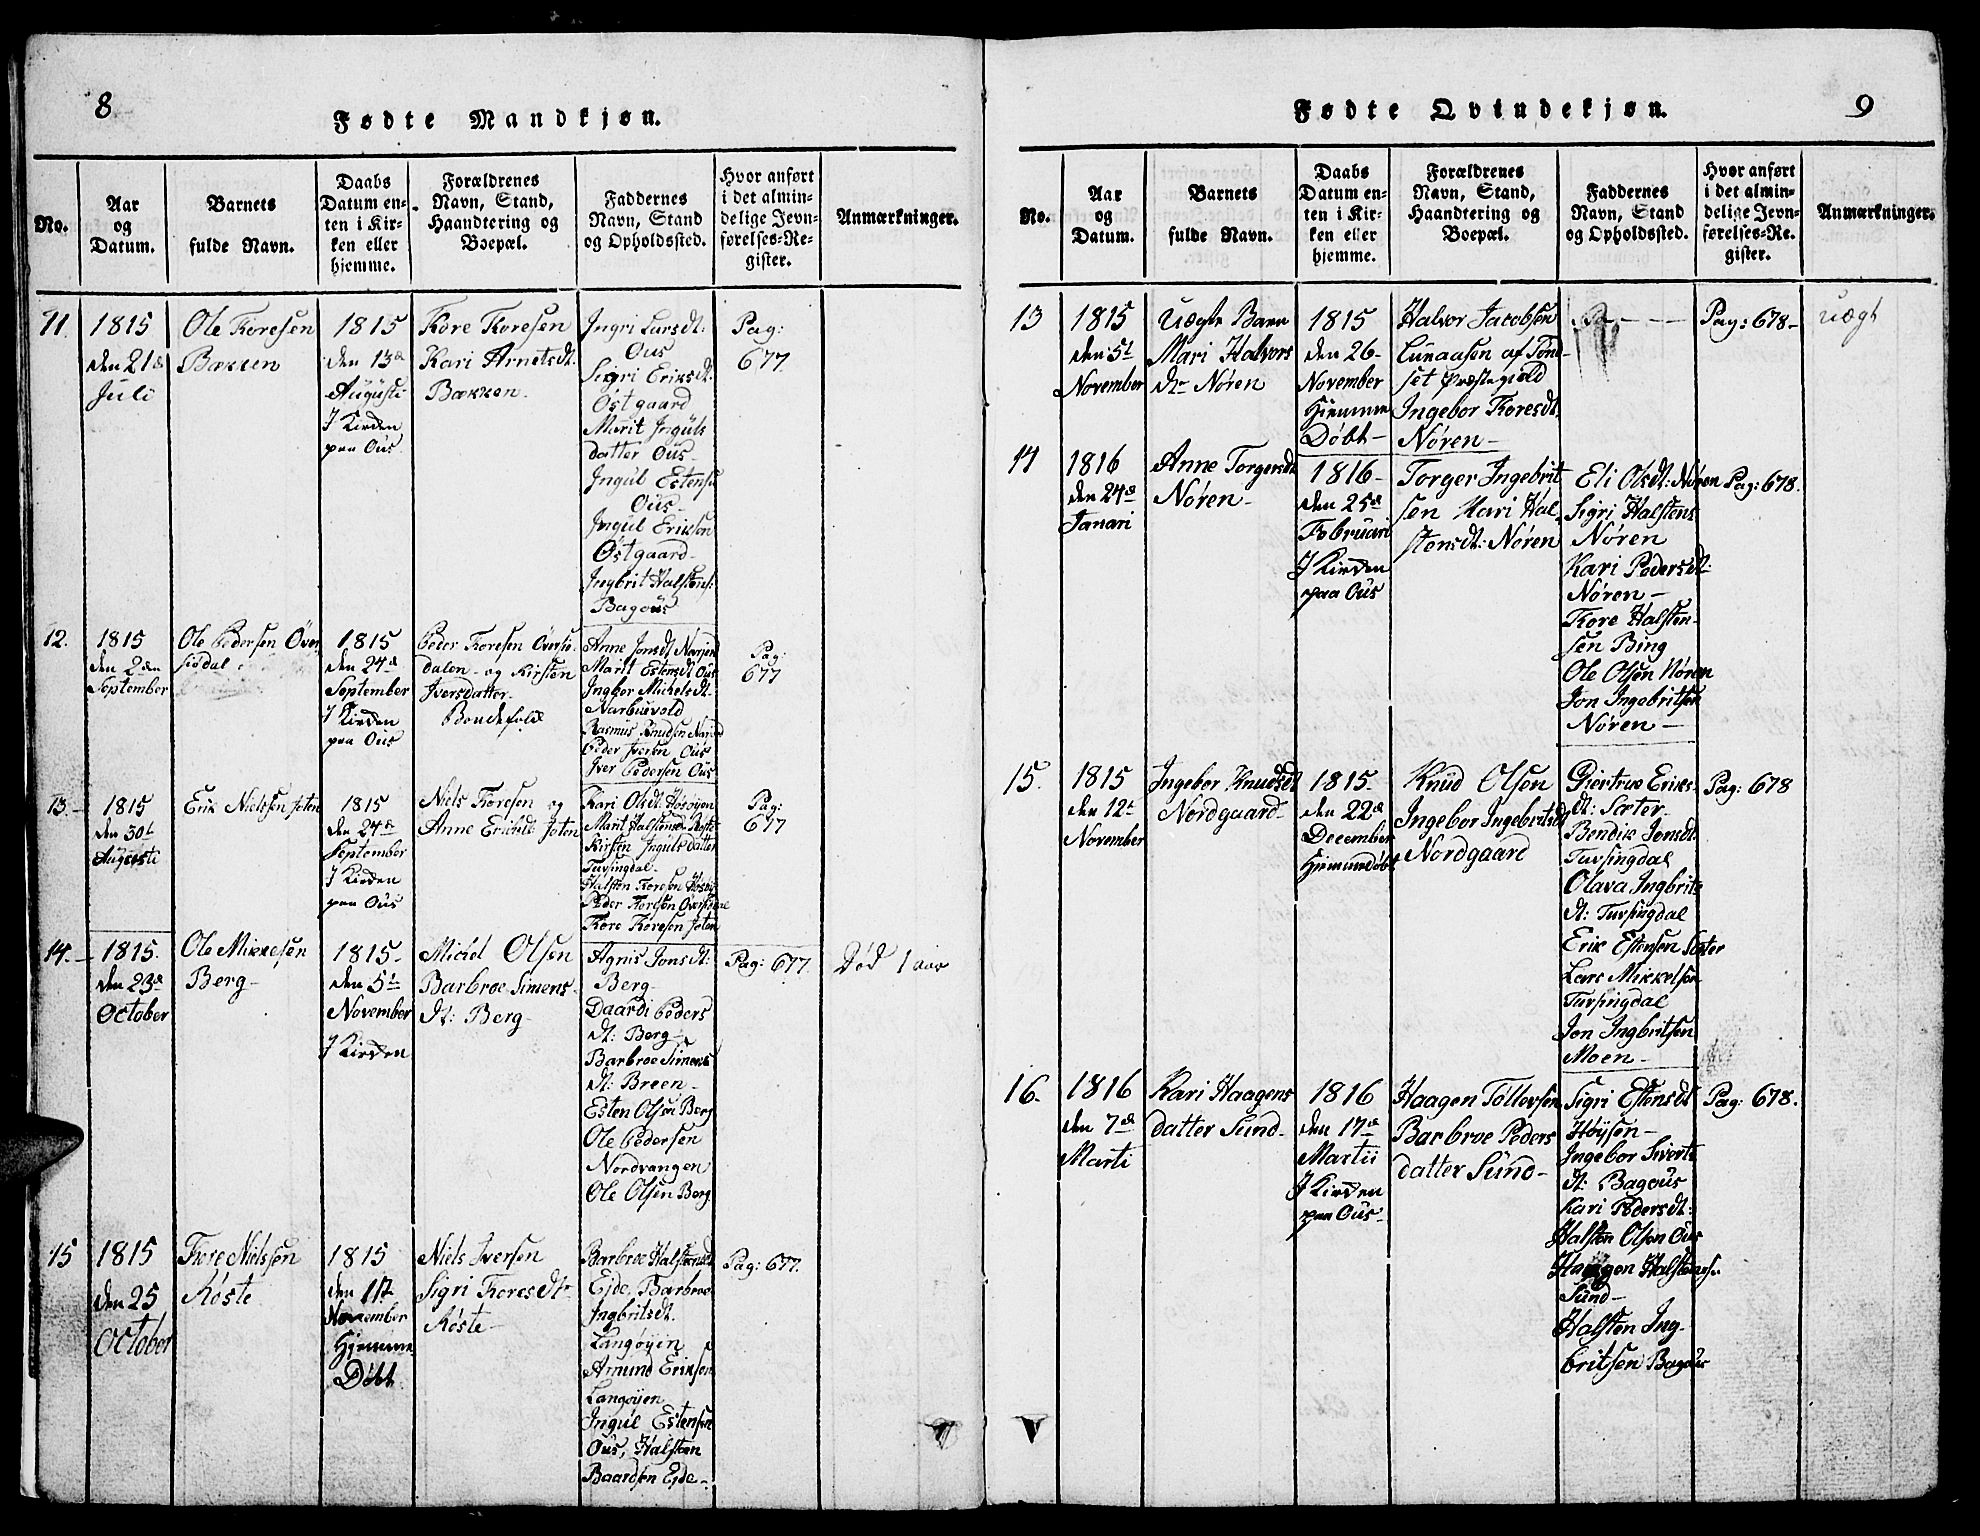 8
Fødte Mandkjøn.
No.
Aar
og
Datum.
Barnets
fulde Navn.
Daabs
Datum en-
ten i Kir-
ken eller
hjemme.
Forældrenes
Navn, Stand,
Haandtering og
Boepæl.
Faddernes
Navn, Stand
og Opholdssted.
Hvor anført
i det almin-
delige Jevn-
førelses-Re-
gister.
Anmærkninger.
11.
1815
den 21de
Juli
Ole Toresen
Bakken
1815
den 13de
Augusti
I Kirken
paa Ous
Tore Toresen
Kari Arnetsdt.
Bakken.
Ingri Larsdt:
Ous
Sigri Eriksdt.
Østgaard
Marit Inguls
datter Ous
Ingul Estens
Ous
Ingul Eriksen
Østgaard
Ingbrit Halstens:
Bagous
Pag:
677
12.
1815
den 2den
September
Ole Pedersen Øver
sisdal
1815
den 24de
September
I Kirken
paa Ous
Peder Toresen Øversis
dalen og Kirsten
Iversdatter
Bondefolk
Anne Jonsdt
Marit Estensdt Ous
Ingbor Michelsdt.
Narbuvold
Rasmus Knudsen
Peder Iversen Ous
Iver Pedersen Ous
Pag:
677
13.
1815
den 30te
Augusti
Erik Nielssen Joten
1815
den 24de
September
I Kirken
paa Ous
Niels Toresen og
Anne Eriksdt Joten
Kari Olsdt: Hosøyen
Marit Halstensdt Røste
Kirsten Inguls datter
Tufsingdal
Halsten Toresen
Peder Toresen
Tore Toresen Joten
Pag:
677
14.
1815.
den 23de
October
Ole Mikkelsen
Berg
1815
den 5te
November
I Kirken
Michel Olsen
Barbroe Simens
dt: Berg
Agnis Jonsdt:
Berg
Daardi Peders
dt: Berg
Barbroe Simens
dt: Breen
Esten Olsen Berg
Ole Pedersen
Nordvangen
Ole Olsen Berg
Pag: 677.
Død 1 aar
15
1815
den 25
October
Tore Nielssen
Røste
1815
den 11te
November
Hjemme
Døbt
Niels Iversen
Sigri Toresdtr
Røste
Barbroe Halstensdt
Eide, Barbroe
Ingbritsdt.
Langøyen
Amund Eriksen
Langøyen
Ingul Estensen
Ous, Halsten
Baardsen Eide
Pag: 677.
9
Fødte Qvindekjøn.
No.
Aar
og
Datum.
Barnets
fulde Navn.
Daabs
Datum en-
ten i Kir-
ken eller
hjemme.
Forældrenes
Navn, Stand,
Haandtering og
Boepæl.
Faddernes
Navn, Stand
og Opholdssted.
Hvor anført
i det almin-
delige Jevn-
førelses-Re-
gister.
Anmærkninger.
13
1815
den 5te
November
Uægte Barn
Mari Halvors
dtr Nøren
1815
den 26
November
Hiemme
Døbt
Halvor Jacobsen
Lunaasen af Tønd-
set Præstegield
Ingebor Toresdt.
Nøren
Pag: 678
uægt
14
1816
den 24de
Janari
Anne Torgersdt
Nøren
1816
den 25de
Februari
I Kirken
paa Ous
Torger Ingebrit
sen Kari Hal
stensdt: Nøren
Eli Olsdt: Nøren
Sigri Halstens
Nøren
Kari Pedersdt:
Nøren
Tore Halsten-
sen Bing
Ole Olsen Nøren
Jon Ingebritsen
Nøren
Pag: 678.
15.
1815
den 12te
November
Ingebor Knudsdt
Nordgaard
1815
den 22de
December
Hjemmedøbt
Knud Olsen
Ingebor Ingebritsdt
Nordgaard
Giertrue Eriks
dt: Sæter
Bendik Jonsdt
Tufsingdal
Olava Ingbrits
dt: Tufsingdal
Erik Estensen Sæter
Lars Mikkelsen
Tufsingdal
Jon Ingbritsen
Moen
Pag: 678
16.
1816
den 7de
Marti
Kari Haagens
datter Sund
1816
den 17de
Martii
I Kirken
paa Ous
Haagen Tollevsen
Barbroe Peders
datter Sund
Sigri Estensdt
Høysen
Ingebor Siverts
dt: Bagous
Kari Pedersdt:
Halsten Olsen Ous
Haagen Halstens.
Sund
Halsten Ing-
britsen Bagous
Pag: 678.